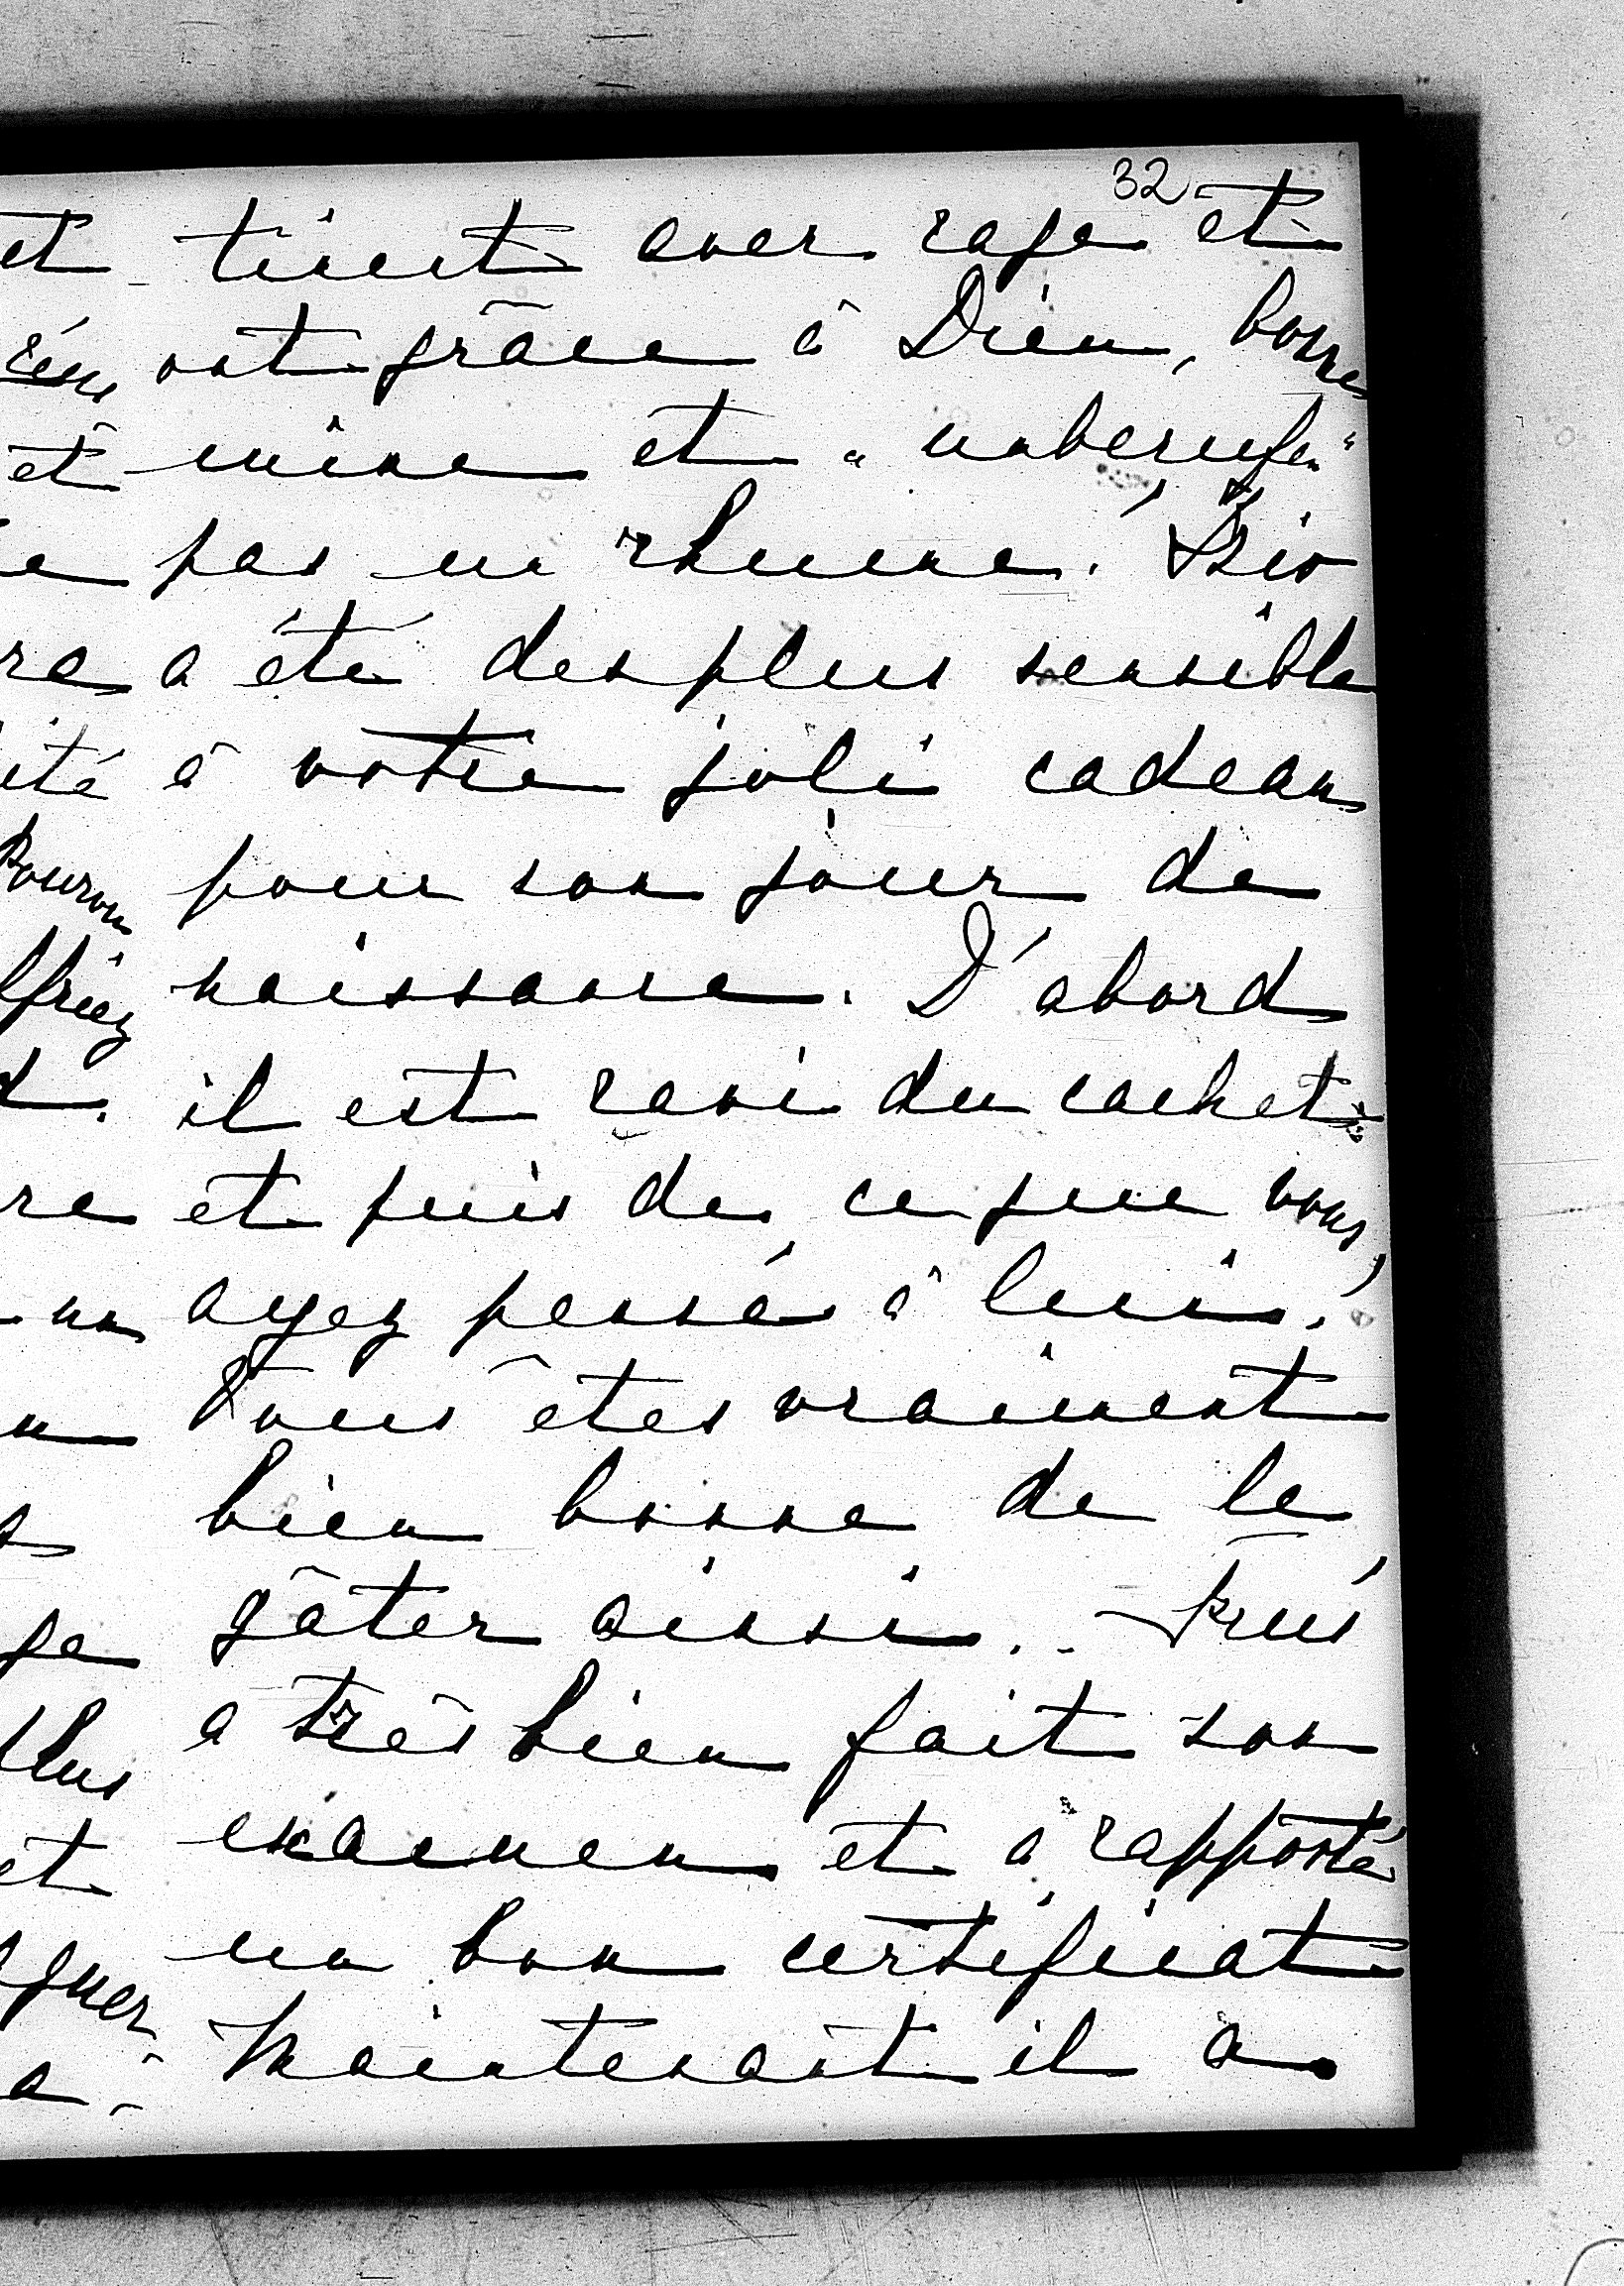 32
et tirent avec rage et
ont grâce à Dieu, bonne
et mine et "unberufen"
pas un rhume.
re a été des plus sensible
ité à votre joli cadeau
pour son jour de
naissance. D'abord
il est ravi du cachet
re et puis de ce que vous
ayez pensé à lui.
Vous êtes vraiment
bien bonne de le
gâter ainsi. -
a très bien fait son
examen et a rapporté
et un bon certificat
Maintenant il a